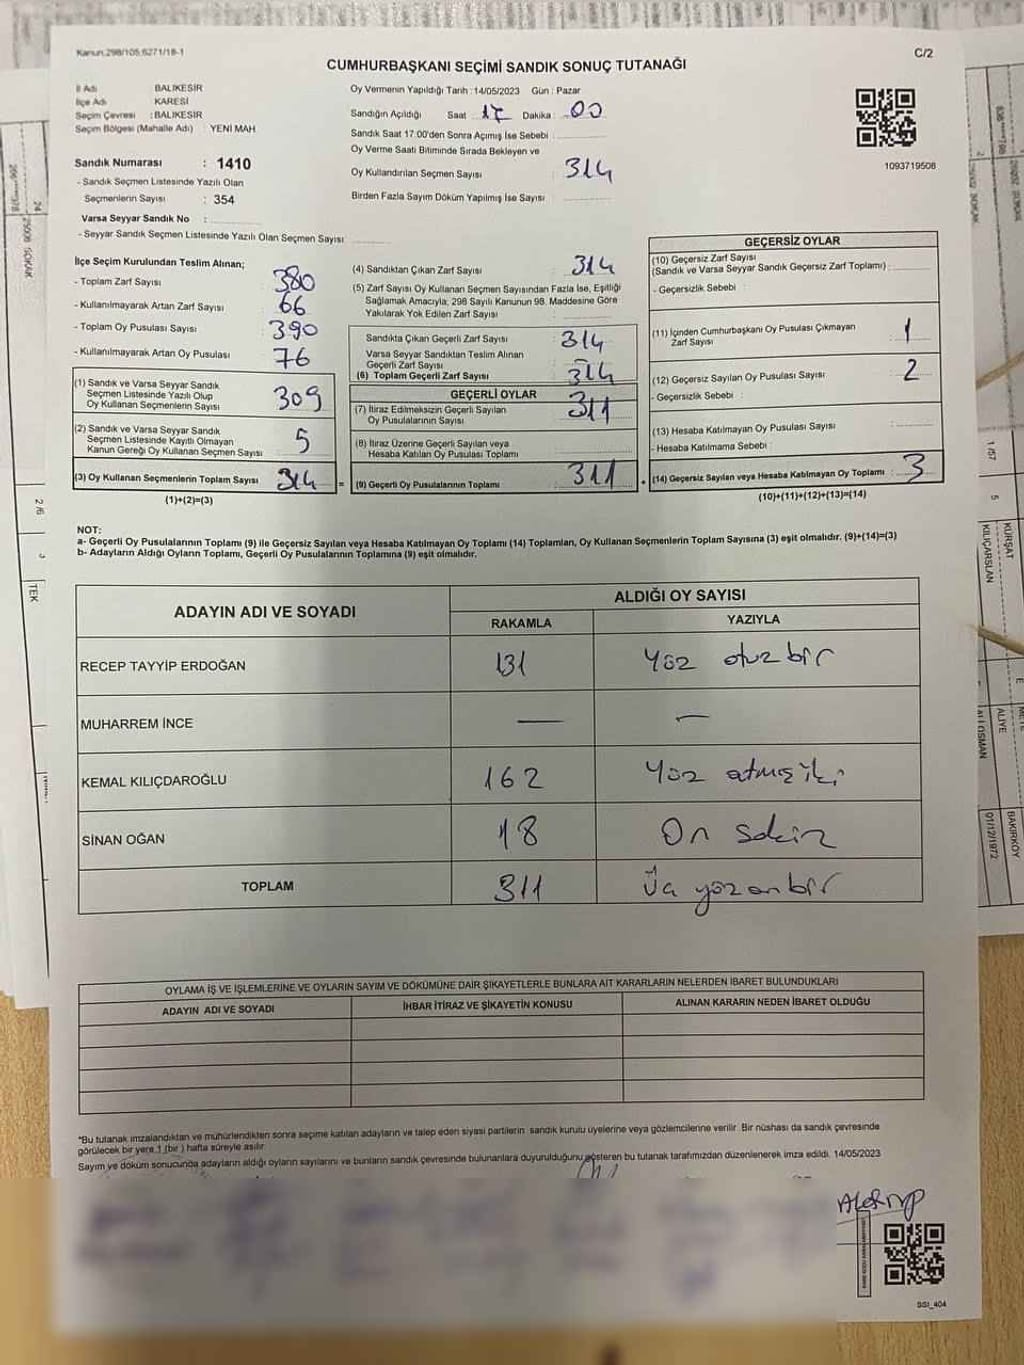 Kanun.298/105;6271/18-1
C/2
CUMHURBAŞKANI SEÇİMİ SANDIK SONUÇ TUTANAĞI
İl Adı BALIKESİR
İlçe Adı KARESİ
Seçim Çevresi : BALIKESİR
Seçim Bölgesi (Mahalle Adı) YENİ MAH
Sandık Numarası : 1410
- Sandık Seçmen Listesinde Yazılı Olan
Seçmenlerin Sayısı : 354
Varsa Seyyar Sandık No :
- Seyyar Sandık Seçmen Listesinde Yazılı Olan Seçmen Sayısı
Oy Vermenin Yapıldığı Tarih :14/05/2023 Gün : Pazar
Sandığın Açıldığı Saat 17 Dakika : 00
Sandık Saat 17:00'den Sonra Açımış İse Sebebi
Oy Verme Saati Bitiminde Sırada Bekleyen ve
Oy Kullandırılan Seçmen Sayısı : 314
Birden Fazla Sayım Döküm Yapılmış İse Sayısı
1093719508
İlçe Seçim Kurulundan Teslim Alınan;
- Toplam Zarf Sayısı 380
- Kullanılmayarak Artan Zarf Sayısı 66
- Toplam Oy Pusulası Sayısı 390
- Kullanılmayarak Artan Oy Pusulası 76
(1) Sandık ve Varsa Seyyar Sandık
Seçmen Listesinde Yazılı Olup
Oy Kullanan Seçmenlerin Sayısı 309
(2) Sandık ve Varsa Seyyar Sandık
Seçmen Listesinde Kayıtlı Olmayan
Kanun Gereği Oy Kullanan Seçmen Sayısı 5
(3) Oy Kullanan Seçmenlerin Toplam Sayısı 314 =
(1)+(2)=(3)
(4) Sandıktan Çıkan Zarf Sayısı 314
(5) Zarf Sayısı Oy Kullanan Seçmen Sayısından Fazla İse, Eşitliği
Sağlamak Amacıyla; 298 Sayılı Kanunun 98. Maddesine Göre
Yakılarak Yok Edilen Zarf Sayısı
Sandıkta Çıkan Geçerli Zarf Sayısı : 314
Varsa Seyyar Sandıktan Teslim Alınan
Geçerli Zarf Sayısı
(6) Toplam Geçerli Zarf Sayısı : 314
GEÇERLİ OYLAR
(7) İtiraz Edilmeksizin Geçerli Sayılan
Oy Pusulalarının Sayısı 311
(8) İtiraz Üzerine Geçerli Sayılan veya
Hesaba Katılan Oy Pusulası Toplamı
(9) Geçerli Oy Pusulalarının Toplamı 311
GEÇERSİZ OYLAR
(10) Geçersiz Zarf Sayısı
(Sandık ve Varsa Seyyar Sandık Geçersiz Zarf Toplamı) :
- Geçersizlik Sebebi :
(11) İçinden Cumhurbaşkanı Oy Pusulası Çıkmayan
Zarf Sayısı 1
(12) Geçersiz Sayılan Oy Pusulası Sayısı 2
- Geçersizlik Sebebi :
(13) Hesaba Katılmayan Oy Pusulası Sayısı
- Hesaba Katılmama Sebebi :
(14) Geçersiz Sayılan veya Hesaba Katılmayan Oy Toplamı : 3
(10)+(11)+(12)+(13)=(14)
NOT:
a- Geçerli Oy Pusulalarının Toplamı (9) ile Geçersiz Sayılan veya Hesaba Katılmayan Oy Toplamı (14) Toplamları, Oy Kullanan Seçmenlerin Toplam Sayısına (3) eşit olmalıdır. (9)+(14)=(3)
b- Adayların Aldığı Oyların Toplamı, Geçerli Oy Pusulalarının Toplamına (9) eşit olmalıdır.
ADAYIN ADI VE SOYADI ALDIĞI OY SAYISI
RAKAMLA YAZIYLA
RECEP TAYYİP ERDOĞAN 131 Yüz otuz bir
MUHARREM İNCE — —
KEMAL KILIÇDAROĞLU 162 Yüz atmış iki
SİNAN OĞAN 18 On sekiz
TOPLAM 311 Üç yüz on bir
OYLAMA İŞ VE İŞLEMLERİNE VE OYLARIN SAYIM VE DÖKÜMÜNE DAİR ŞİKAYETLERLE BUNLARA AİT KARARLARIN NELERDEN İBARET BULUNDUKLARI
ADAYIN ADI VE SOYADI İHBAR İTİRAZ VE ŞİKAYETİN KONUSU ALINAN KARARIN NEDEN İBARET OLDUĞU
*Bu tutanak imzalandıktan ve mühürlendikten sonra seçime katılan adayların ve talep eden siyasi partilerin sandık kurulu üyelerine veya gözlemcilerine verilir. Bir nüshası da sandık çevresinde
görülecek bir yere 1 (bir) hafta süreyle asılır.
Sayım ve döküm sonucunda adayların aldığı oyların sayılarını ve bunların sandık çevresinde bulunanlara duyurulduğunu gösteren bu tutanak tarafımızdan düzenlenerek imza edildi. 14/05/2023
SSI_404
2/6
TEK
1/57
5
KILIÇARSLAN
KÜRŞAT
ALİYE
BAKIRKÖY
01/12/1972